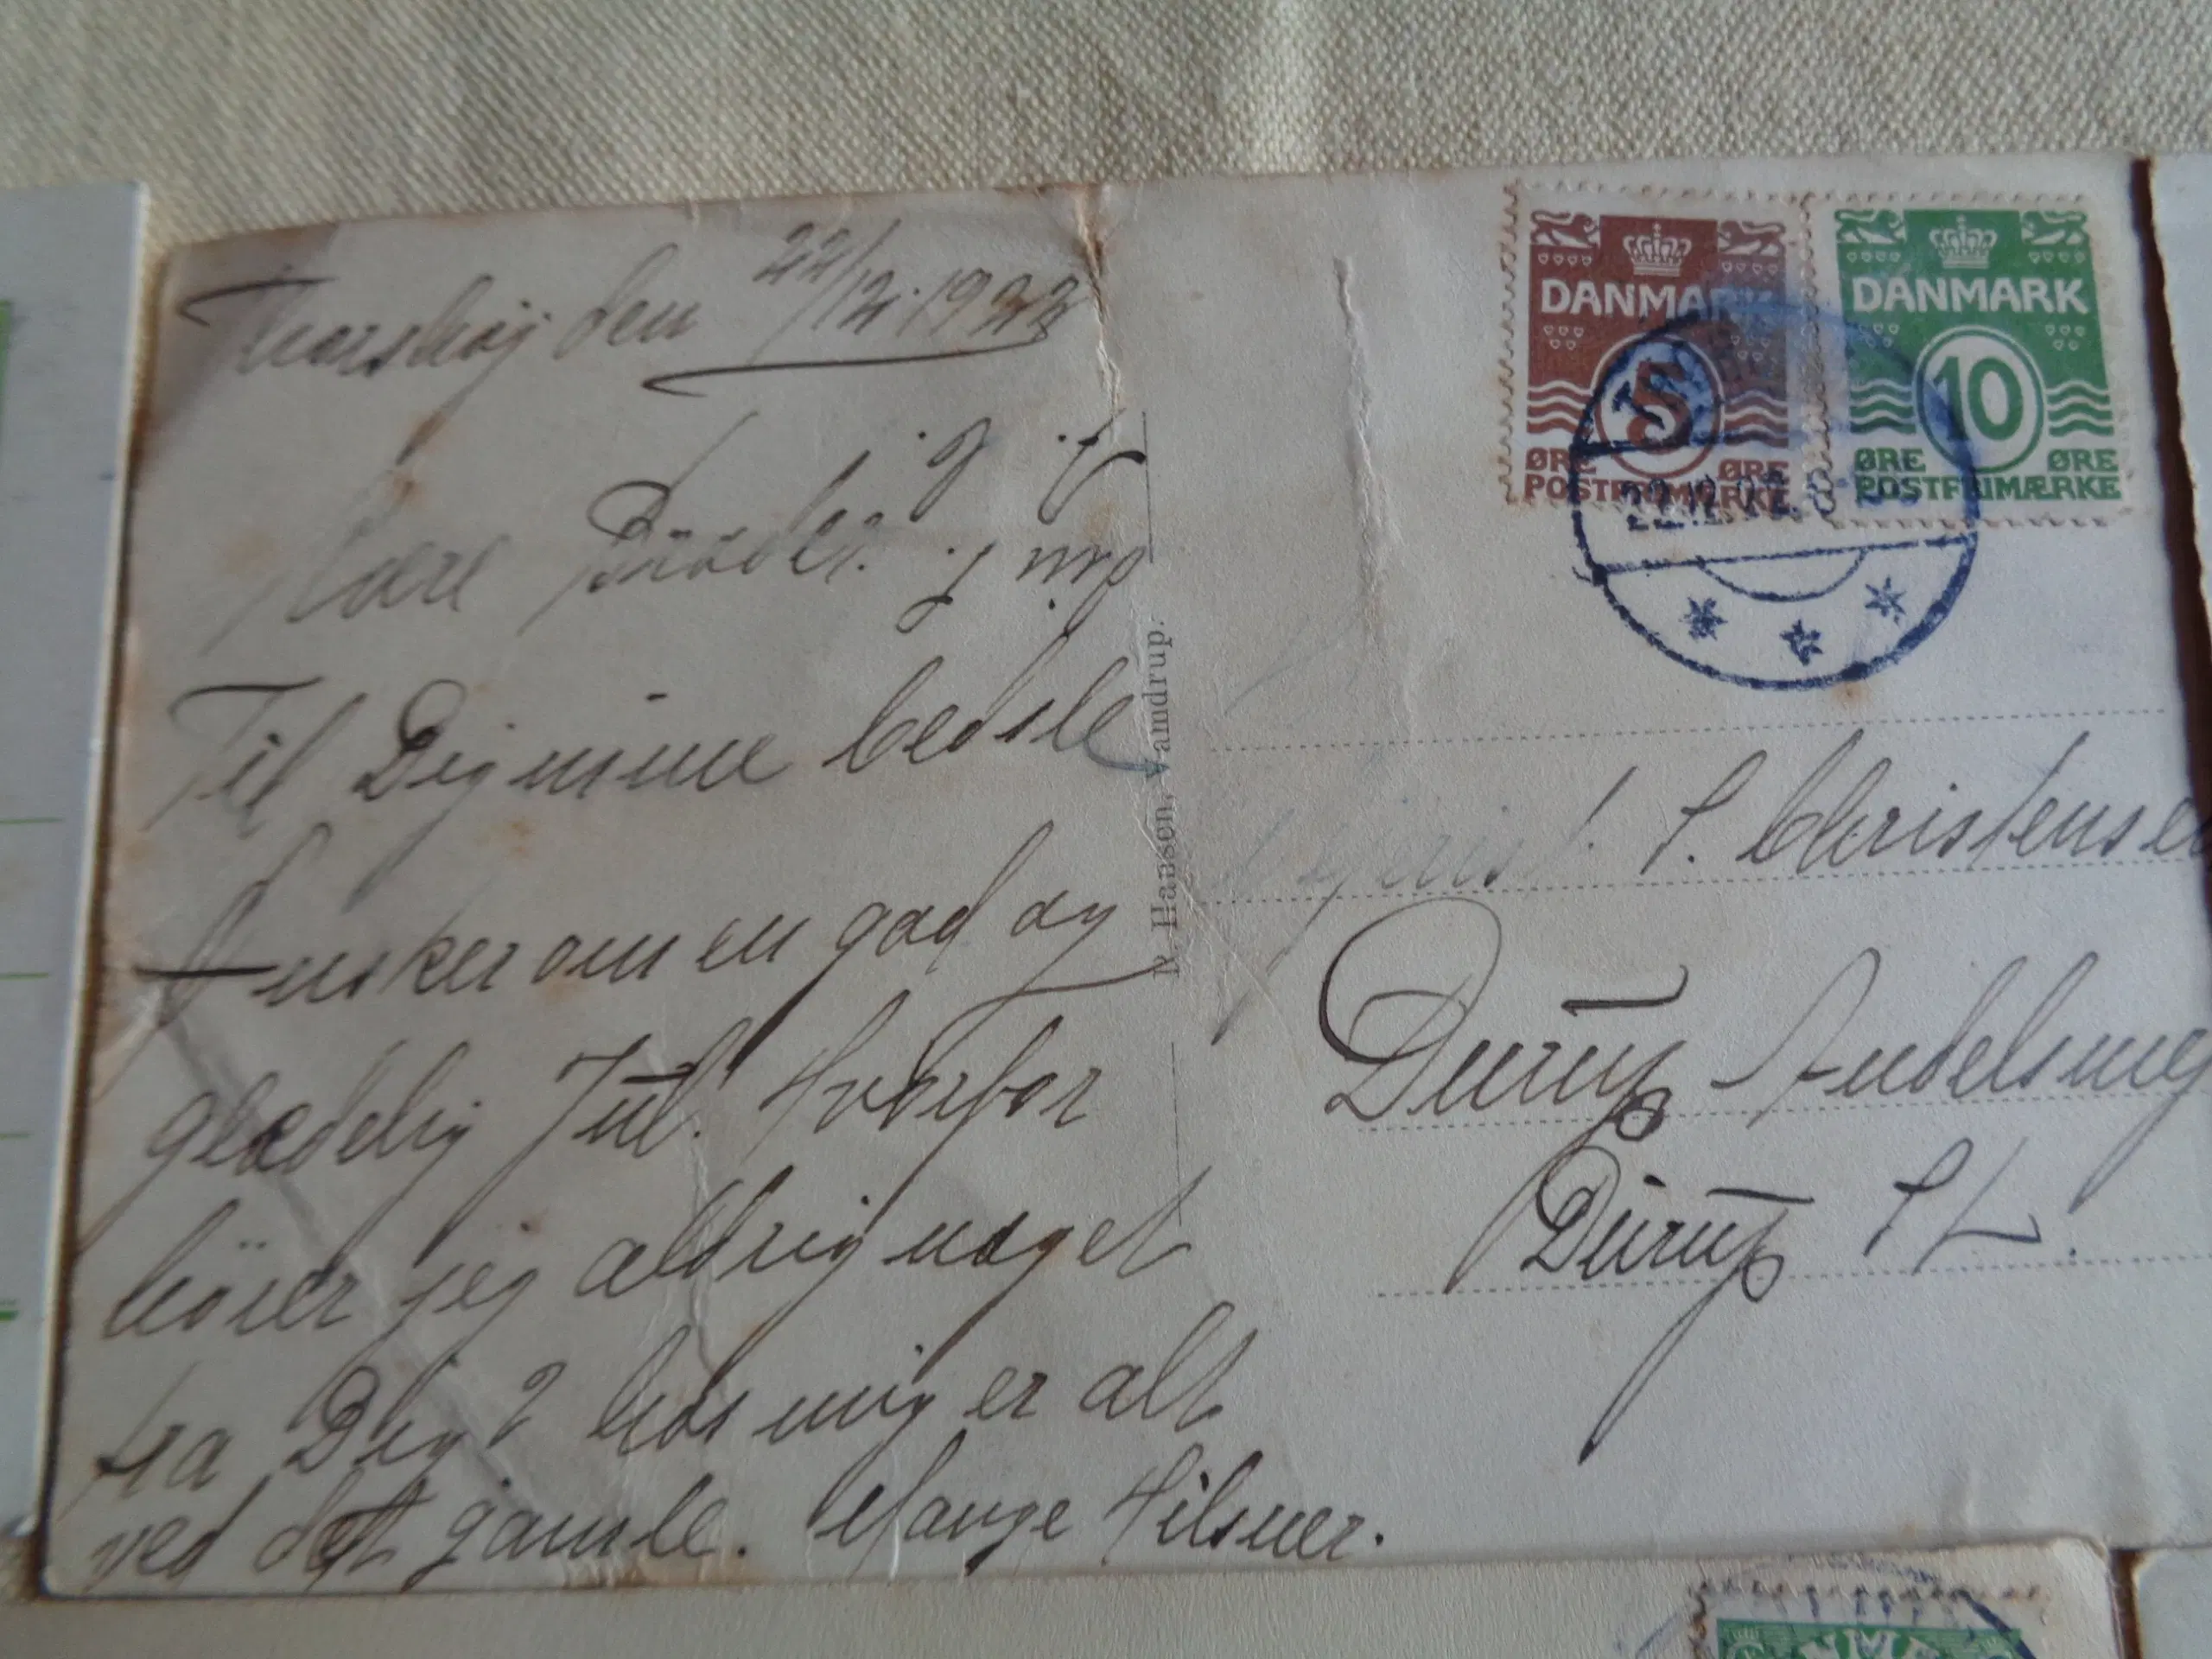 Thorshöj den 22/12. 1922
Kære Broder.
Til Dig mine bedste
Ønsker om en god og
glædelig Jul. Hvorfor
hører jeg aldrig noget
fra Dig? hos mig er alt
ved det gamle. Mange Hilsner.
R. Hansen, Vamdrup.
DANMARK
5
ØRE ØRE
POSTFRIMÆRKE
DANMARK
10
ØRE ØRE
POSTFRIMÆRKE
22.12.
Mejerist. S. Christensen
Durup Andelsmej
Durup St.